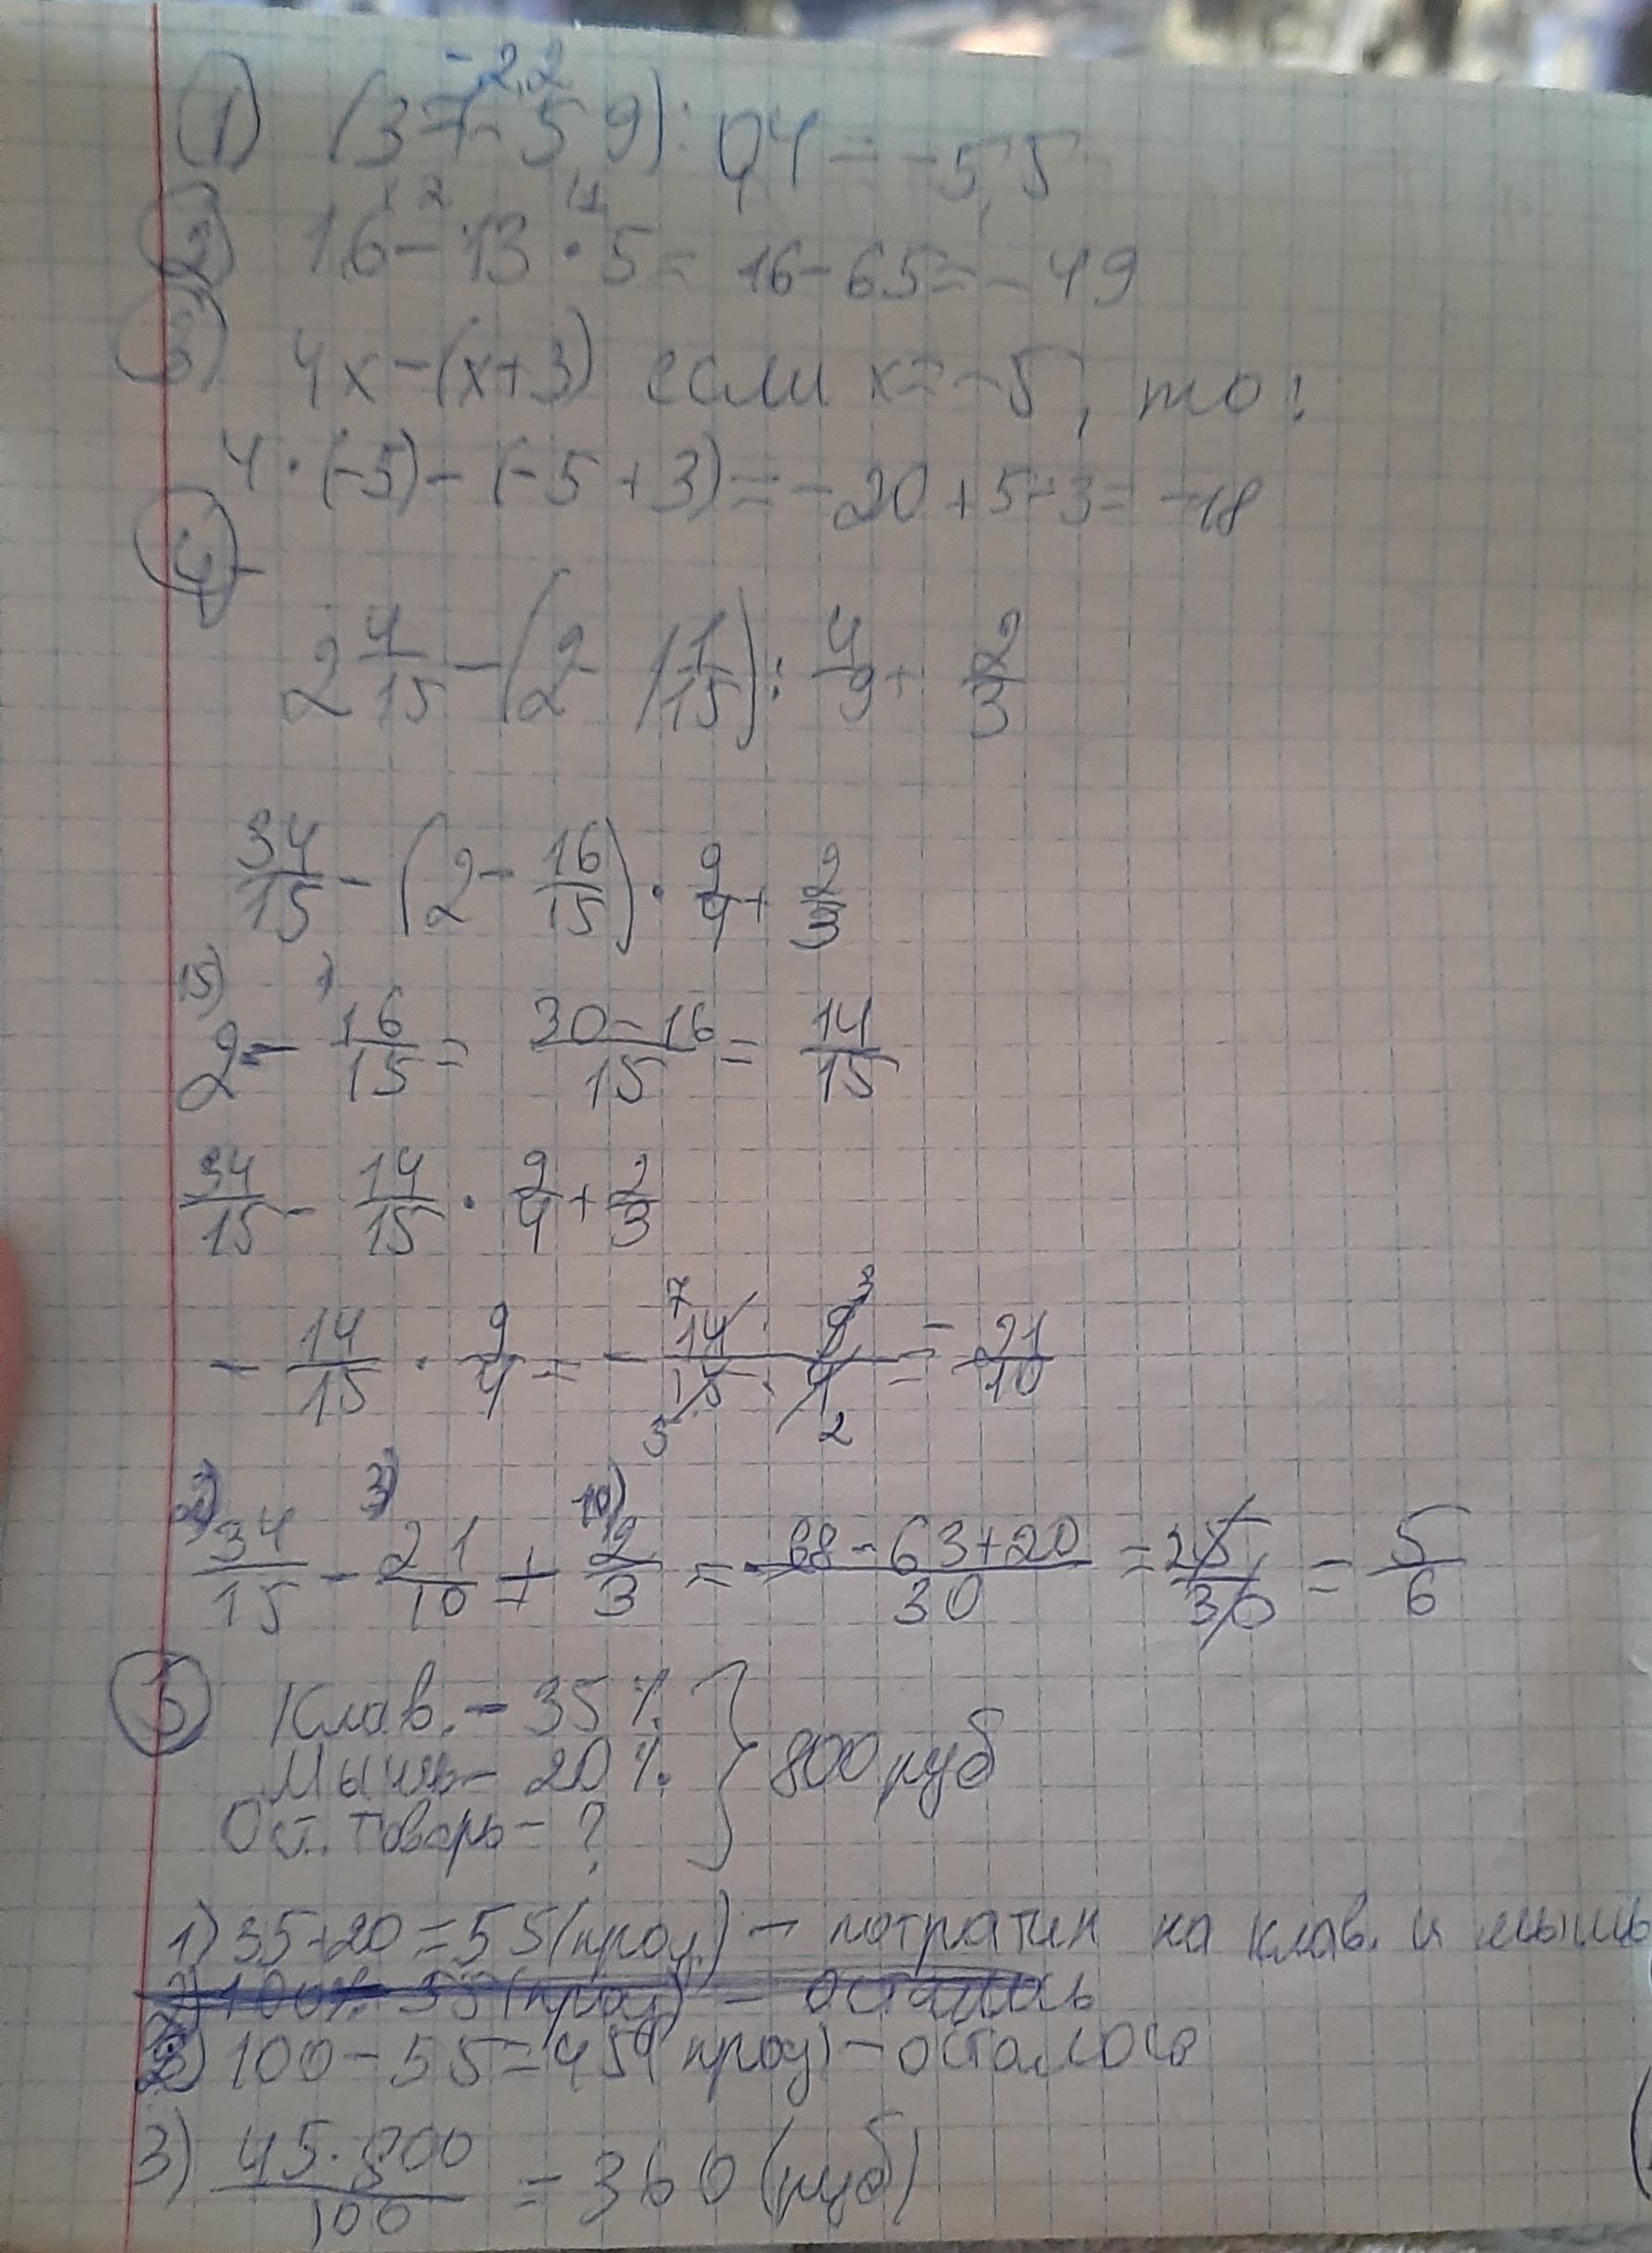 -2,2
1 (3,7-5,9):0,4=-5,5
1 2 1
2 16-13·5=16-65=-49
3 4x-(x+3) если x=-5, то:
4·(-5)-(-5+3)=-20+5-3=-18
4
2 4/15 - (2 1 1/15) : 4/9 + 2/3
34/15 - (2 - 16/15) · 9/4 + 2/3
15) 1)
2 - 16/15 = 30-16/15 = 14/15
34/15 - 14/15 · 9/4 + 2/3
- 14/15 · 9/4 = - 7 14 · 9 3 / 5 15 · 4 2 = - 21/10
2) 34/15 - 3) 21/10 + 10) 2/3 = 68-63+20/30 = 25/30 = 5/6
5 Клав. - 35%
Мышь - 20% } 800 руб
Ост. товары - ?
1) 35+20=55(проц.) - потратили на клав. и мышь
2) 100% 55(проц) - осталось
2) 100-55=45(проц) - осталось
3) 45·800/100 = 360 (руб)